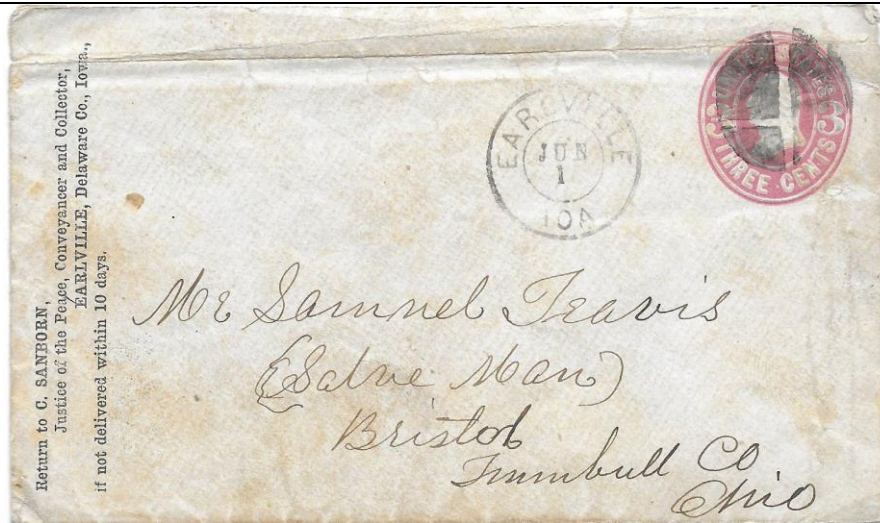 Return to C. SANBORN,
Justice of the Peace, Conveyancer and Collector,
EARLVILLE, Delaware Co., Iowa.,
if not delivered within 10 days.
EARLVILLE
JUN
1
IOA
3 3
THREE CENTS
Mr Samuel Travis
(Salve Man)
Bristol
Trumbull CO
Ohio